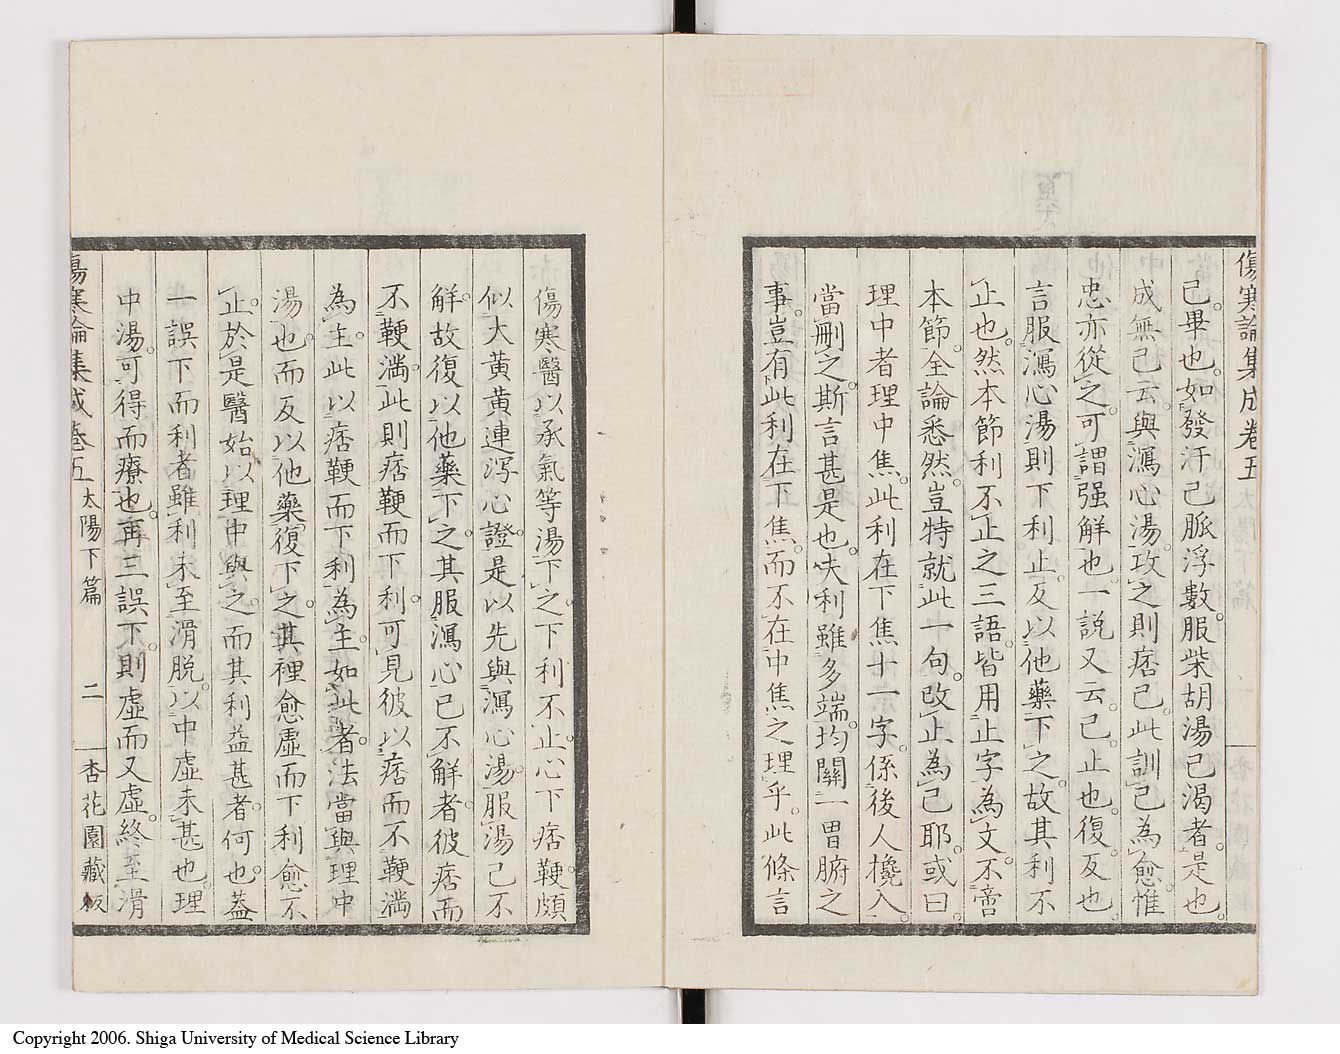 傷寒論集成卷五
已。畢也。如發汗已脈浮數。服柴胡湯已渴者。是也。
成無己云。與瀉心湯。攻之則痞已。此訓已為愈。惟
忠亦從之。可謂强解也。一說又云。已。止也。復。反也。
言服瀉心湯則下利止。反以他藥下之。故其利不
止也。然本節利不止之三語。皆用止字為文。不啻
本節。全論悉然。豈特就此一句。改止為已耶。或曰。
理中者理中焦。此利在下焦十一字。係後人攙入。
當刪之。斯言甚是也。夫利雖多端。均關一胃腑之
事。豈有此利在下焦。而不在中焦之理乎。此條言
傷寒。醫以承氣等湯下之。下利不止。心下痞鞕。頗
似大黃黃連瀉心證。是以先與瀉心湯。服湯已不
解。故復以他藥下之。其服瀉心已不解者。彼痞而
不鞕滿。此則痞鞕而下利。可見彼以痞而不鞕滿
為主。此以痞鞕而下利為主。如此者。法當與理中
湯也。而反以他藥復下之。其裡愈虛而下利愈不
止。於是醫始以理中與之。而其利益甚者。何也。蓋
一誤下而利者雖利未至滑脫。以中虛未甚也。理
中湯可得而療也。再三誤下。則虛而又虛。終至滑
傷寒論集成卷五 太陽下篇 二 杏花園藏板
Copyright 2006. Shiga University of Medical Science Library